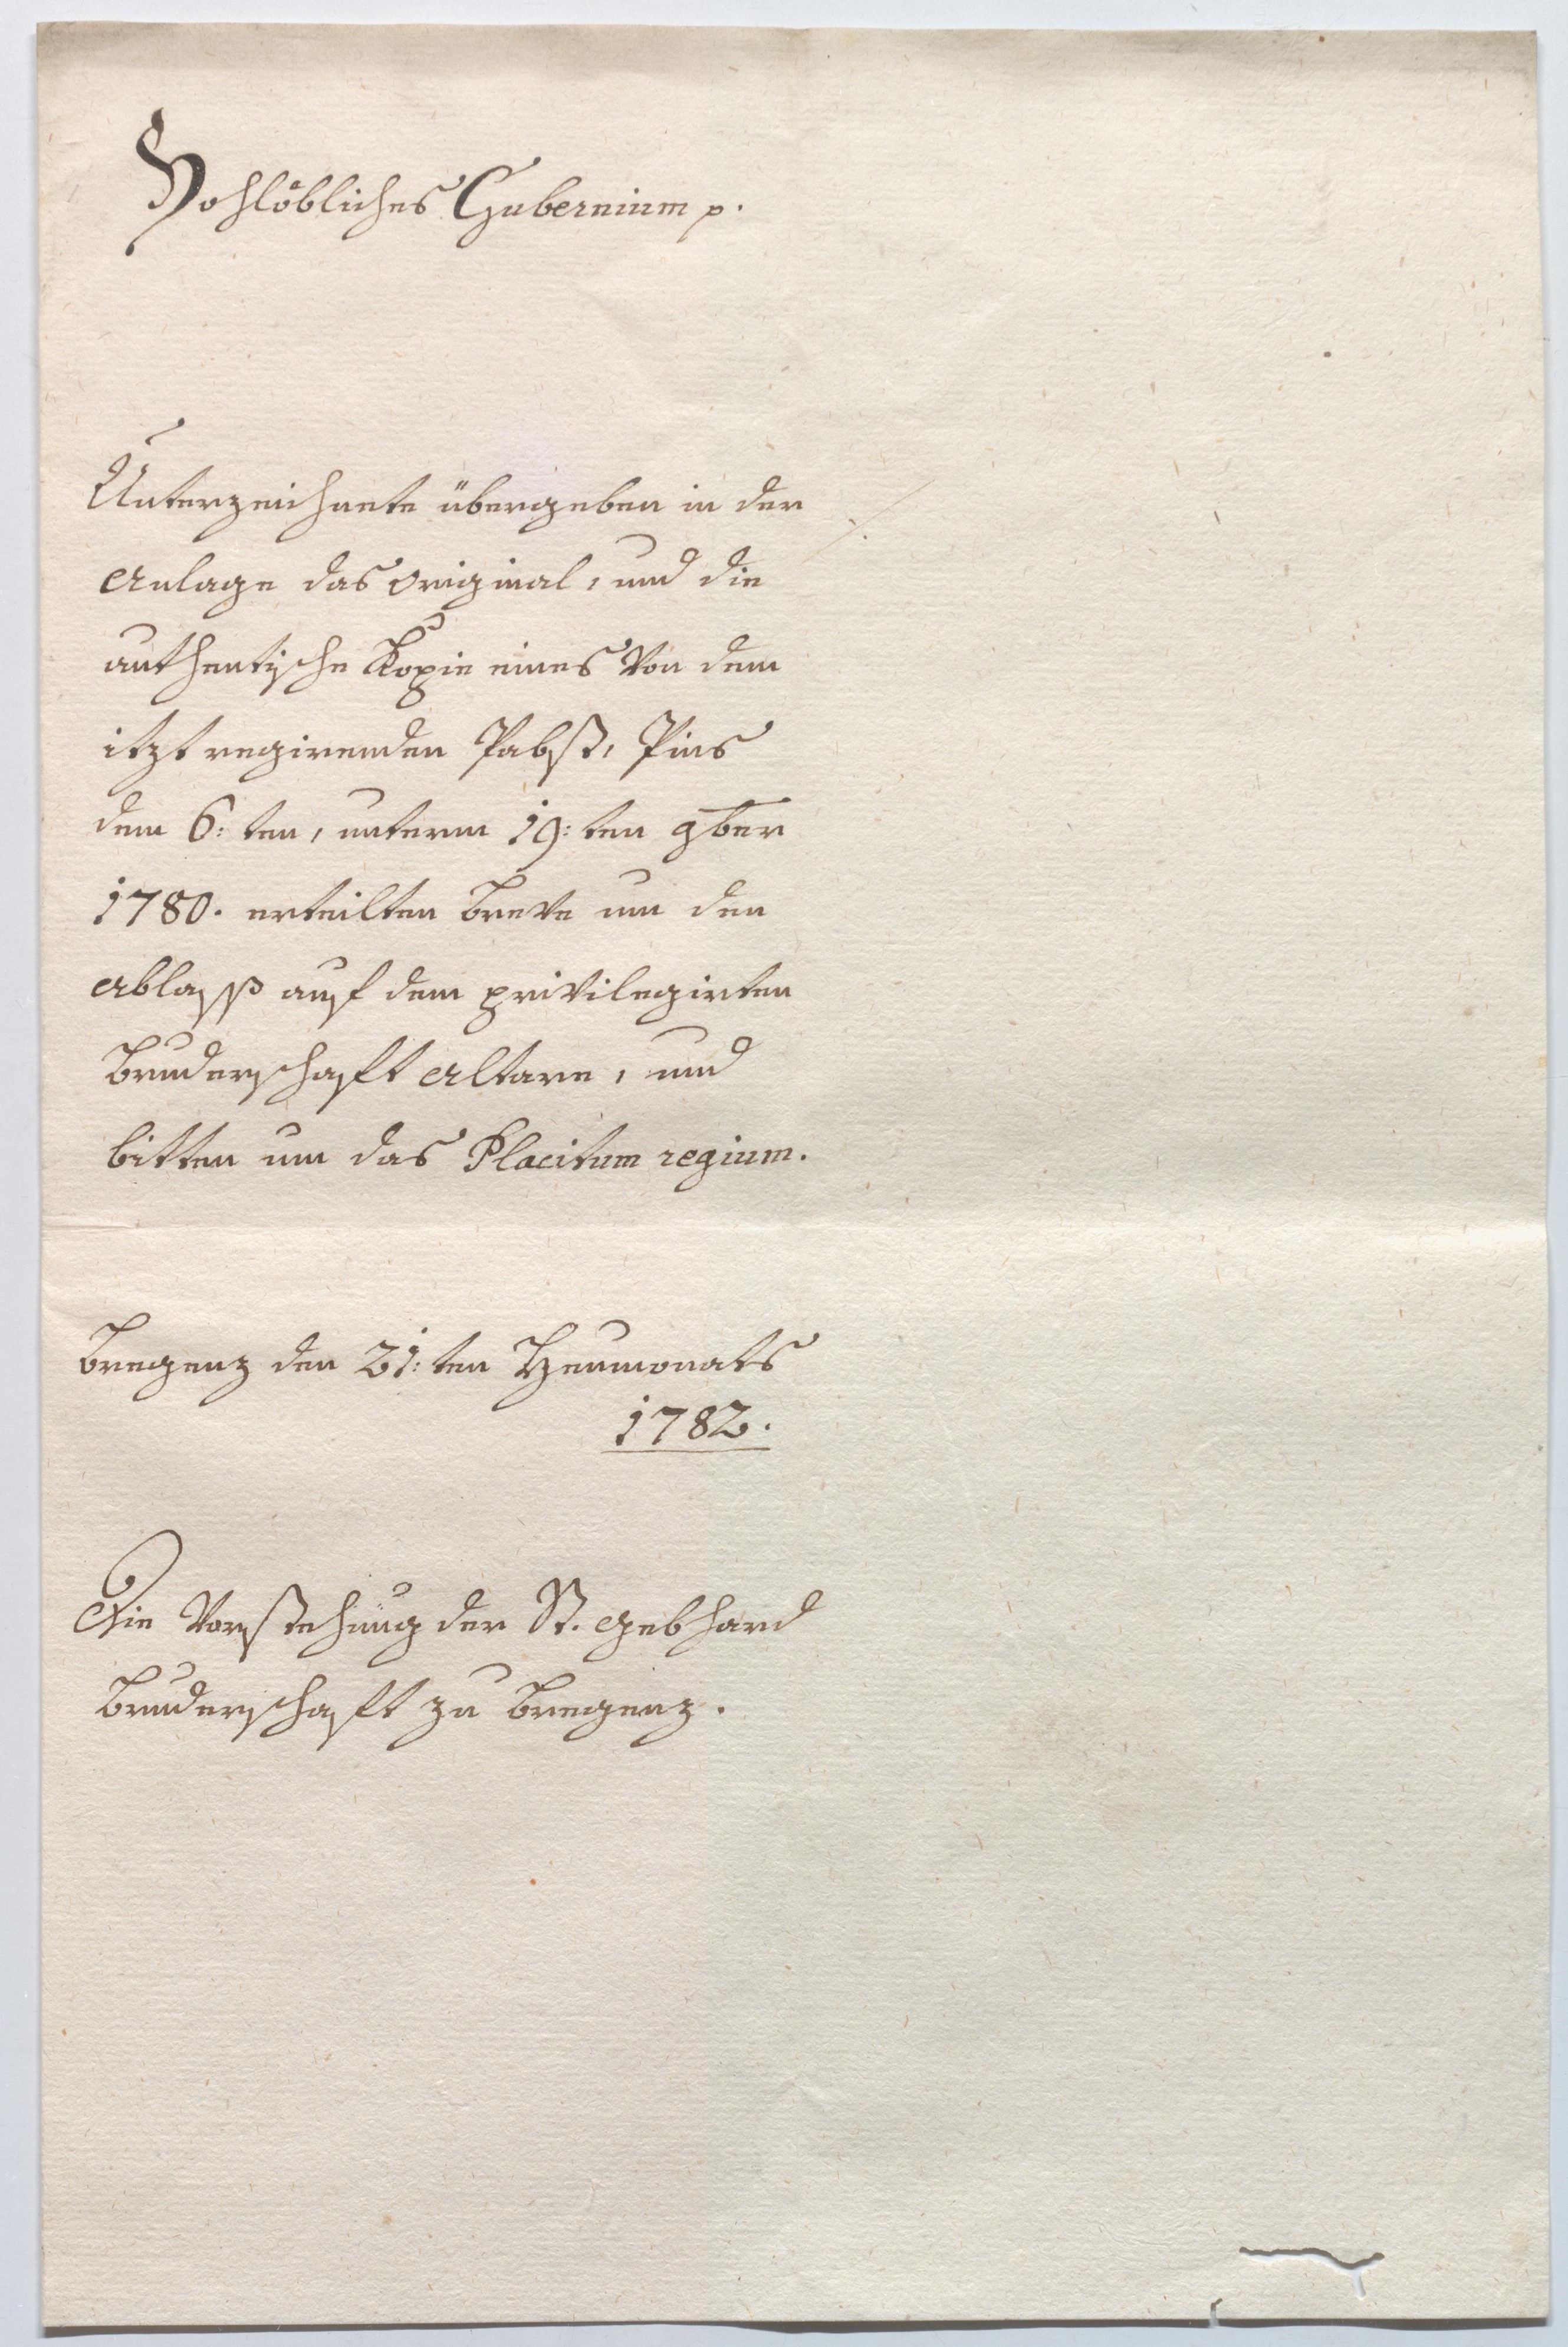 Hochlöbliches Gubernium p.
Unterzeichnete übergeben in der ./.
Anlage das Original, und die
authentische Kopie eines von dem
itzt regirenden Pabst, Pius
dem 6:ten, unterm 19:ten 9ber
1780. erteilten Breve um den
Ablaß auf dem privilegirten
Bruderschaft Altare, und
bitten um das Placitum regium.
Bregenz den 21:ten Heumonats
1782.
Die Vorstehung der St. Gebhard
Bruderschaft zu Bregenz.